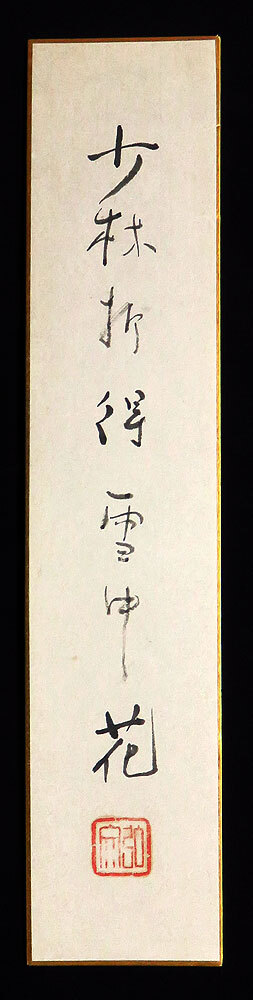 少林折得雪中花